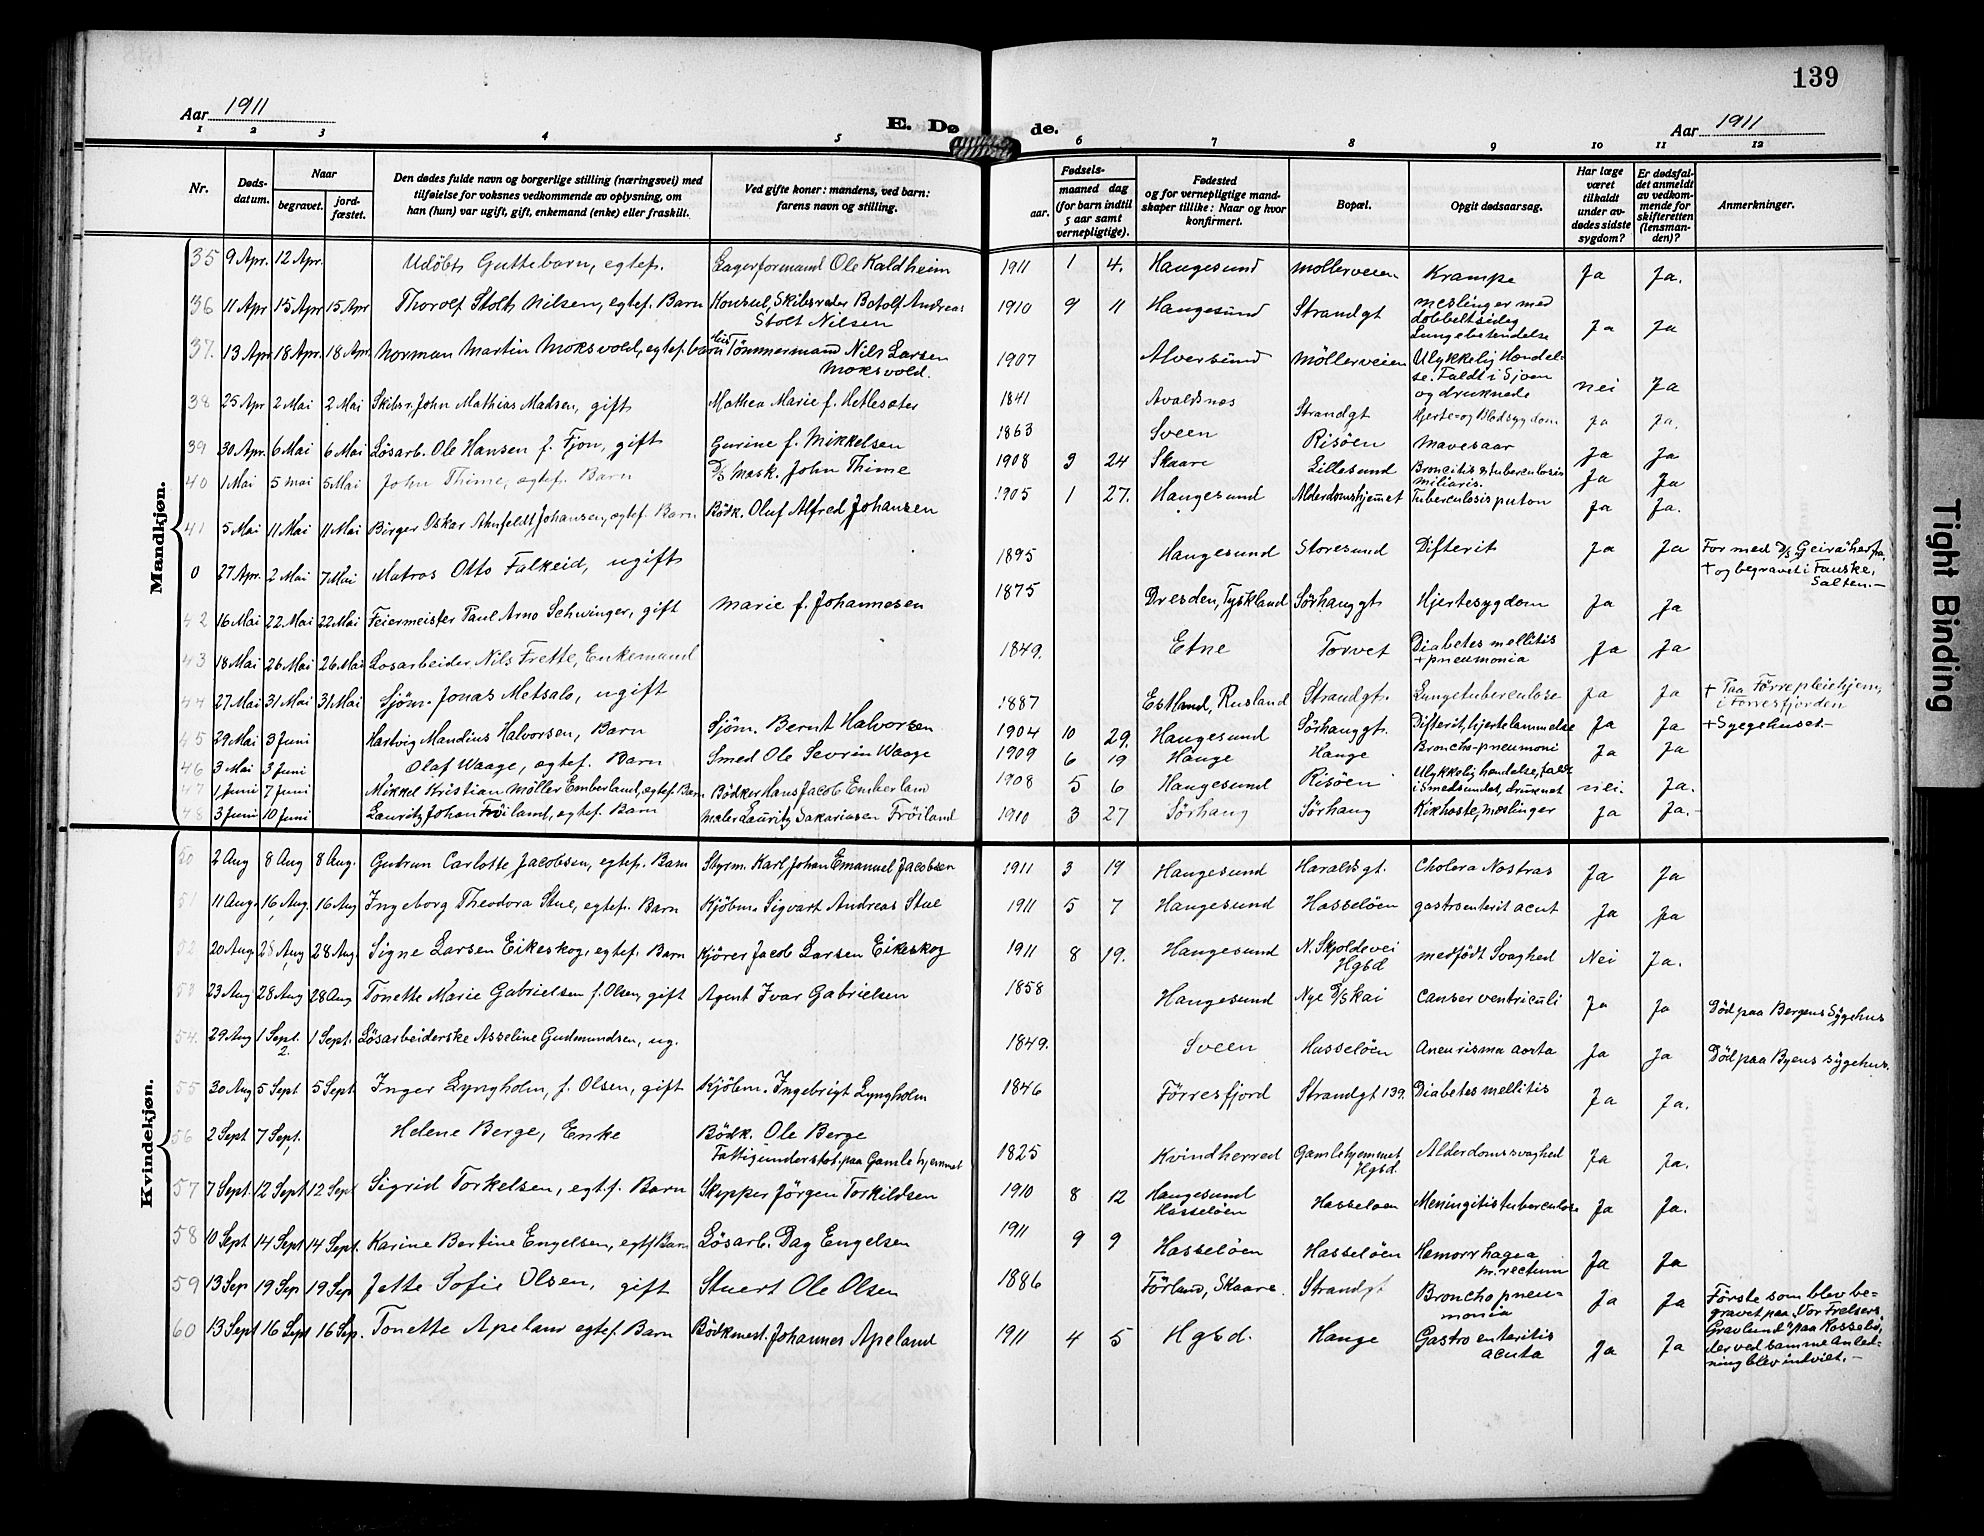 139
Aar 1911
E. Døde.
Aar 1911
1 2 3 4 5 6 7 8 9 10 11 12
Nr.
Døds-datum.
Naar
begravet.
jord-fæstet.
Den dødes fulde navn og borgerlige stilling (næringsvei) med
tilføielse for voksnes vedkommende av oplysning, om
han (hun) var ugift, gift, enkemand (enke) eller fraskilt.
Ved gifte koner: mandens, ved barn:
farens navn og stilling.
Fødsels-
aar.
maaned dag
(for barn indtil
5 aar samt
vernepligtige).
Fødested
og for vernepligtige mand-
skaper tillike: Naar og hvor
konfirmert.
Bopæl.
Opgit dødsaarsag.
Har læge
været
tilkaldt
under av-
dødes sidste
sygdom?
Er dødsfal-
det anmeldt
av vedkom-
mende for
skifteretten
(lensman-
den)?
Anmerkninger.
Mandkjøn.
35 9 Apr. 12 Apr. Udöbt Guttebarn, egtef. Lagerformand Ole Kaldheim 1911 1 4. Haugesund Møllerveien Krampe Ja Ja.
36 11 Apr 15 Apr 15 Apr Thorolf Stolt Nilsen, egtef. Barn Konsul, Skibsreder Botolf Andreas
Stolt Nilsen 1910 9 11 Haugesund Strandgt Meslinger med
dobbeltsidig
Lungebetendelse Ja Ja
37. 13 Apr 18 Apr 18 Apr Norman Martin Moksvold, egtef. barn Tömmermand Nils Larsen
Moksvold. 1907 Alversund Möllerveien Ulykkelig Hændel-
se. Faldt i Sjøen
og druknede nei Ja
38 25 Apr 2 Mai 2 Mai Skibsr. John Mathias Madsen, gift Mathea Marie f. Hetleseter 1841 Avaldsnes Strandgt Hjerte- og Blodsygdom Ja Ja.
39 30 Apr. 6 Mai 6 Mai Løsarb. Ole Hansen f. Fjon, gift Gurine f. Mikkelsen 1863 Sveen Risöen Mavesaar Ja Ja
40 1 Mai 5 Mai 5 Mai John Thime, egtef. Barn D/S Mask. John Thime 1908 3 24 Skaare Lillesund Broncitis & tuberculosis
miliaris. Ja Ja
41 5 Mai 11 Mai 11 Mai Birger Oskar Ahnfeldt Johansen, egtef. Barn Bödk. Oluf Alfred Johansen 1905 1 27. Haugesund Alderdomshjemmet Tuberculosis pulton Ja Ja.
0 27 Apr. 2 Mai 7 Mai Matros Otto Falkeid, ugift 1895 Haugesund Storesund Difterit Ja Ja For med D/S "Geira" herfra,
+ og begravet i Fauske,
Salten.-
42 16 Mai 22 Mai 22 Mai Feiermeister Paul Arno Schwinger, gift Marie f. Johannesen 1875 Dresden, Tyskland Sörhauggt Hjertesygdom Ja Ja
43 18 Mai 26 Mai 26 Mai Losarbeider Nils Frette, Enkemand 1849. Etne Torvet Diabetes mellitis
+ pneumonia Ja Ja
44 27 Mai 31 Mai 31 Mai Sjöm. Jonas Metsalo, ugift 1887 Estland, Rusland Strandgt. Lungetuberculose Ja Ja + Paa Förre pleiehjem,
i Förresfjorden
45 29 Mai 3 Juni Hartvig Mandius Halvorsen, Barn Sjöm. Bernt Halvorsen 1904 10 29. Haugesund Sörhauggt. Difterit, hjertelammelse Ja Ja + Sygehuset.-
46 3 Mai 3 Juni Olaf Waage, egtef. Barn Smed Ole Sevrin Waage 1909 6 19 Hauge Hauge Broncho-pneumoni Ja Ja
47 1 Juni 7 Juni Mikkel Kristian Möller Emberland, egtef. Barn Bödker Hans Jacob Emberland 1908 5 6 Haugesund Risöen Ulykkelig hendelse, faldt
i Smedsundet, druknet nei. Ja.
48 3 Juni 10 Juni Lauritz Johan Fröiland, egtef. Barn Maler Lauritz Sakariasen Fröiland 1910 3 27 Sörhaug Sörhaug Kikhoste, Mæslinger Ja Ja.-
Kvindekjøn.
50 2 Aug 8 Aug 8 Aug. Gudrun Carlotte Jacobsen, egtef. Barn Styrm. Karl Johan Emanuel Jacobsen 1911 3 19 Haugesund Haraldsgt. Cholera Nostras Ja Ja
51 11 Aug. 16 Aug. 16 Aug Ingeborg Theodora Stue, egtef. Barn Kjöbm. Sigvart Andreas Stue 1911 5 7 Haugesund Hasseløen gastroenterit acut Ja Ja
52 20 Aug 28 Aug 28 Aug. Signe Larsen Eikeskog, egtef. Barn Kjörer Jacob Larsen Eikeskog 1911 8 19. Haugesund N. Skjoldevei
Hgsd medfödt Svaghed Nei Ja.
53 23 Aug 28 Aug 28 Aug Tonette Marie Gabrielsen f. Olsen, gift Agent Ivar Gabrielsen 1858 Haugesund Nye D/S kai Canser ventriculi Ja Ja Död paa Bergens Sygehus
54. 29 Aug 1 Sept. 2. 1 Sept. Løsarbeiderske Asseline Gudmundsen, ug. 1849. Sveen Hasseløen Aneurisma aorta Ja Ja Död paa Byens sygehus.
55 30 Aug 5 Sept 5 Sept Inger Lyngholm, f. Olsen, gift Kjöbm. Ingebrigt Lyngholm 1846 Förresfjord Strandgt 139. Diabetes mellitis Ja Ja.
56 2 Sept 7 Sept. Helene Berge, Enke Bödk. Ole Berge
Fattigunderstöt. paa Gamlehjemmet 1825 Kvindherred Gamlehjemmet
Hgsd. Alderdomssvaghed Ja Ja.
57 7 Sept. 12 Sept 12 Sept Sigrid Torkelsen, egtf. Barn Skipper Jörgen Torkildsen 1910 8 12 Haugesund
Hasseløen Hasseløen Meningitis tuberculose Ja Ja.
58 10 Sept 14 Sept 14 Sept. Karine Bertine Engelsen, egtf Barn Løsarb. Dag Engelsen 1911 9 9 Hasseløen Hasseløen Hemorrhagea
pr. rectum Ja Ja
59 13 Sep 19 Sep 19 Sep Jette Sofie Olsen, gift Stuert Ole Olsen 1886 Förland, Skaare. Strandgt Bronchopneu-
monia Ja Ja Förste som blev be-
gravet paa "Vor Frelsers
Gravlund" paa Rossebö,
der ved samme Anled-
ning blev indviet.-
60 13 Sept 16 Sept 16 Sep. Tonette Apeland egtef. Barn Bödkmest. Johannes Apeland 1911 4 5 Hgsd. Hauge Gastro enteritis
acuta Ja Ja
Tight Binding